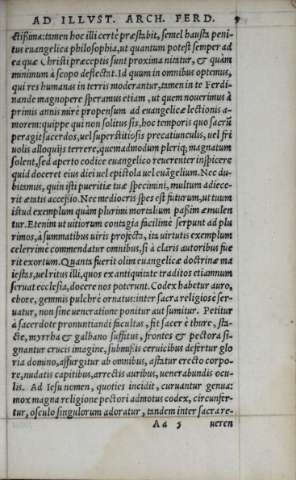 AD ILLVST. ARCH. FERD. 9
ctißima: tamen hoc illi certè præstabit, semel hausta peni
tus euangelica philosophia, ut quantum potest semper ad
ea quæ Christi præceptis sunt proxima nitatur, & quàm
minimum à scopo deflectat. Id quum in omnibus optemus,
qui res humanas in terris moderantur, tamen in te Ferdi-
nande magnopere speramus etiam, ut quem nouerimus à
primis annis mirè propensum ad euangelicæ lectionis a-
morem: quippe qui non solitus sis, hoc temporis quo sacrũ
peragit sacerdos, uel superstitiosis precatiunculis, uel fri
uolis alloquijs terrere, quemadmodum pleriq; magnatum
solent, sed aperto codice euangelico reuerenter inspicere
quid doceret eius diei uel epistola uel euãgelium. Nec du-
bitamus, quin isti pueritiæ tuæ specimini, multum adiece-
rit ætatis accessio. Nec mediocris spes est futurum, ut tuum
istud exemplum quàm plurimi mortalium passim æmulen
tur. Etenim ut uitiorum contagia facillimè serpunt ad plu
rimos, à summatibus uiris profecta, ita uirtutis exemplum
celerrimè commendatur omnibus, si à claris autoribus fue
rit exortum. Quanta fuerit olim euangelicæ doctrinæ ma
iestas, uel ritus illi, quos ex antiquitate traditos etiamnum
seruat ecclesia, docere nos poterunt. Codex habetur auro,
ebore, gemmis pulchrè ornatus: inter sacra religiosè ser-
uatur, non sine ueneratione ponitur aut sumitur. Petitur
à sacerdote pronuntiandi facultas, fit sacer è thure, sta-
cte, myrrha & galbano suffitus, frontes & pectora si-
gnantur crucis imagine, submißis ceruicibus defertur glo
ria domino, assurgitur ab omnibus, astatur erecto corpo-
re, nudatis capitibus, arrectis auribus, uenerabundis ocu-
lis. Ad Iesu nomen, quoties incidit, curuantur genua:
mox magna religione pectori admotus codex, circunfer-
tur, osculo singulorum adoratur, tandem inter sacra re-
Aa 5 ueren